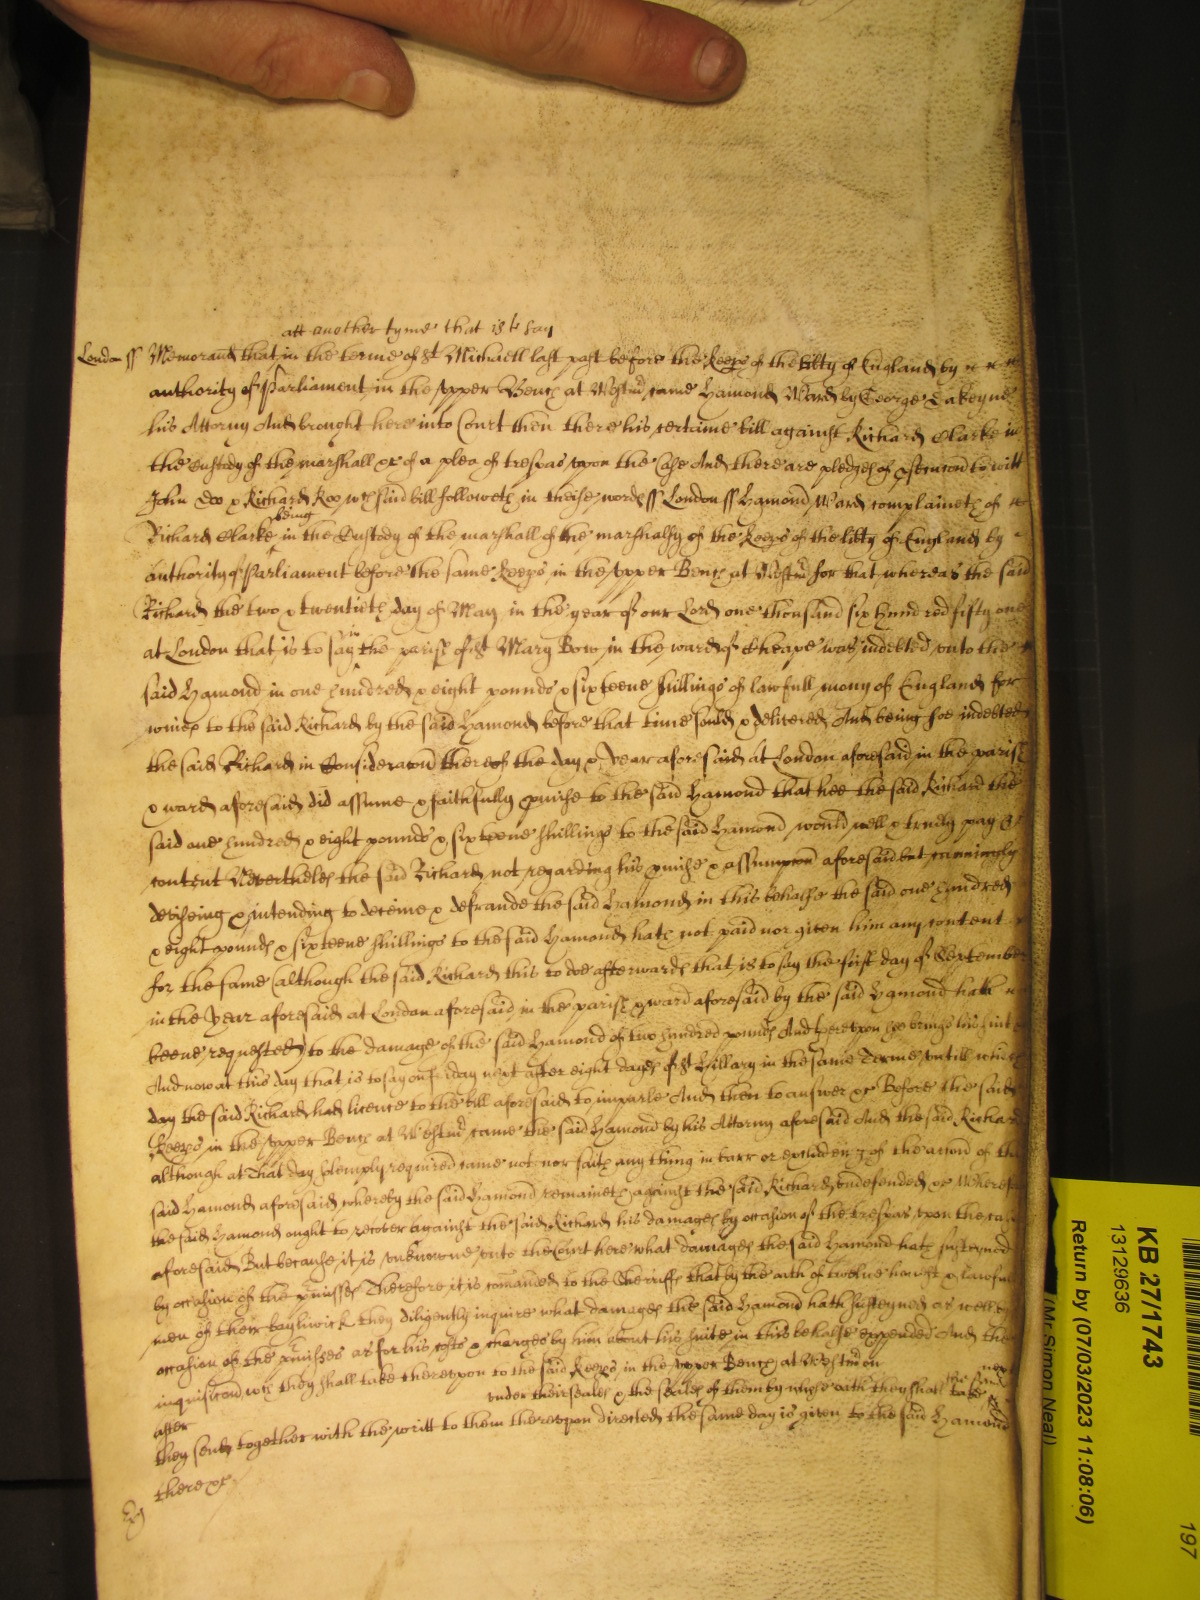 att another tyme that is to say
London ss Memorand that in the terme of St Michaell last past before the Keeps of the libty of England by
authority of Parliament in the Upper Bench at Westmr came Hamond Ward by George Lakeyne
his Attorny And brought here into Court then there his certaine bill against Richard Clarke in
the Custody of the marshall &c of a plea of trespas upon the Case And there are pledges of psecucon to witt
John Doo & Richard Roo wch said bill followeth in theise words ss London ss Hamond Ward complaineth of
being
Richard Clarke in the Custody of the marshall of the marshalsy of the Keeps of the libty of England by
authority of Parliament before the same Keeps in the Upper Bench at Westmr for that whereas the said
Richard the two & twentieth day of May in the year of our Lord one thousand six hundred fifty one
in
at London that is to say the parish of St Mary Bow in the ward of Cheape was indebted unto the
said Hamond in one hundred & eight pounds & sixteene shillings of lawfull mony of England for
wines to the said Richard by the said Hamond before that time sould & delivered And being soe indebted
the said Richard in Consideracon thereof the day & year aforesaid at London aforesaid in the parish
& ward aforesaid did assume & faithfully pmise to the said Hamond that hee the said Richard the
said one hundred & eight pounds & sixteene shillings to the said Hamond would well & truely pay &
content Nevertheles the said Richard not regarding his pmise & assumpcon aforesaid but cunningly
deviseing & intending to deceive & defraude the said Hamond in this behalfe the said one hundred
& eight pounds & sixteene shillings to the said Hamond hath not paid nor given him any content
for the same (although the said Richard this to doe afterwards that is to say the first day of September
in the year aforesaid at London aforesaid in the parish & ward aforesaid by the said Hamond hath
beene requested) to the damage of the said Hamond of two hundred pounds And hereupon hee brings his suit
And now at this day that is to say on Friday next after eight dayes of St Hillary in the same Terme untill which
day the said Richard had licence to the bill aforesaid to imparle And then to answer &c Before the said
Keeps in the Upper Bench at Westmr came the said Hamond by his Attorny aforesaid And the said Richard
although at That day solemply required came not nor saith any thing in barr or of the accon of the
said Hamond aforesaid whereby the said Hamond remaineth against the said Richard undefended &c Wherefore
the said Hamond ought to recover against the said Richard his damages by occasion of the trespas upon the case
aforesaid But because it is unknowne unto the Court here what damages the said Hamond hath susteyned
by occasion of the pmisses Therefore it is comanded to the Sheriffs that by the oath of twelve honest & lawfull
men of their bayliwick they diligently inquire what damages the said Hamond hath susteyned as well by
occasion of the pmisses as for his costs & charges by him about his suite in this behalfe expended And the
inquisicon wch they shall take thereupon to the said Keeps in the Upper Bench at Westmr on next
after under their seales & the seales of them by whose oath they shall take
they send together with the writt to them thereupon directed the same day is given to the said Hamond
there &c
KB 27/1743
13129636
Return by (07/03/2023 11:08:06)
(Mr Simon Neal)
197